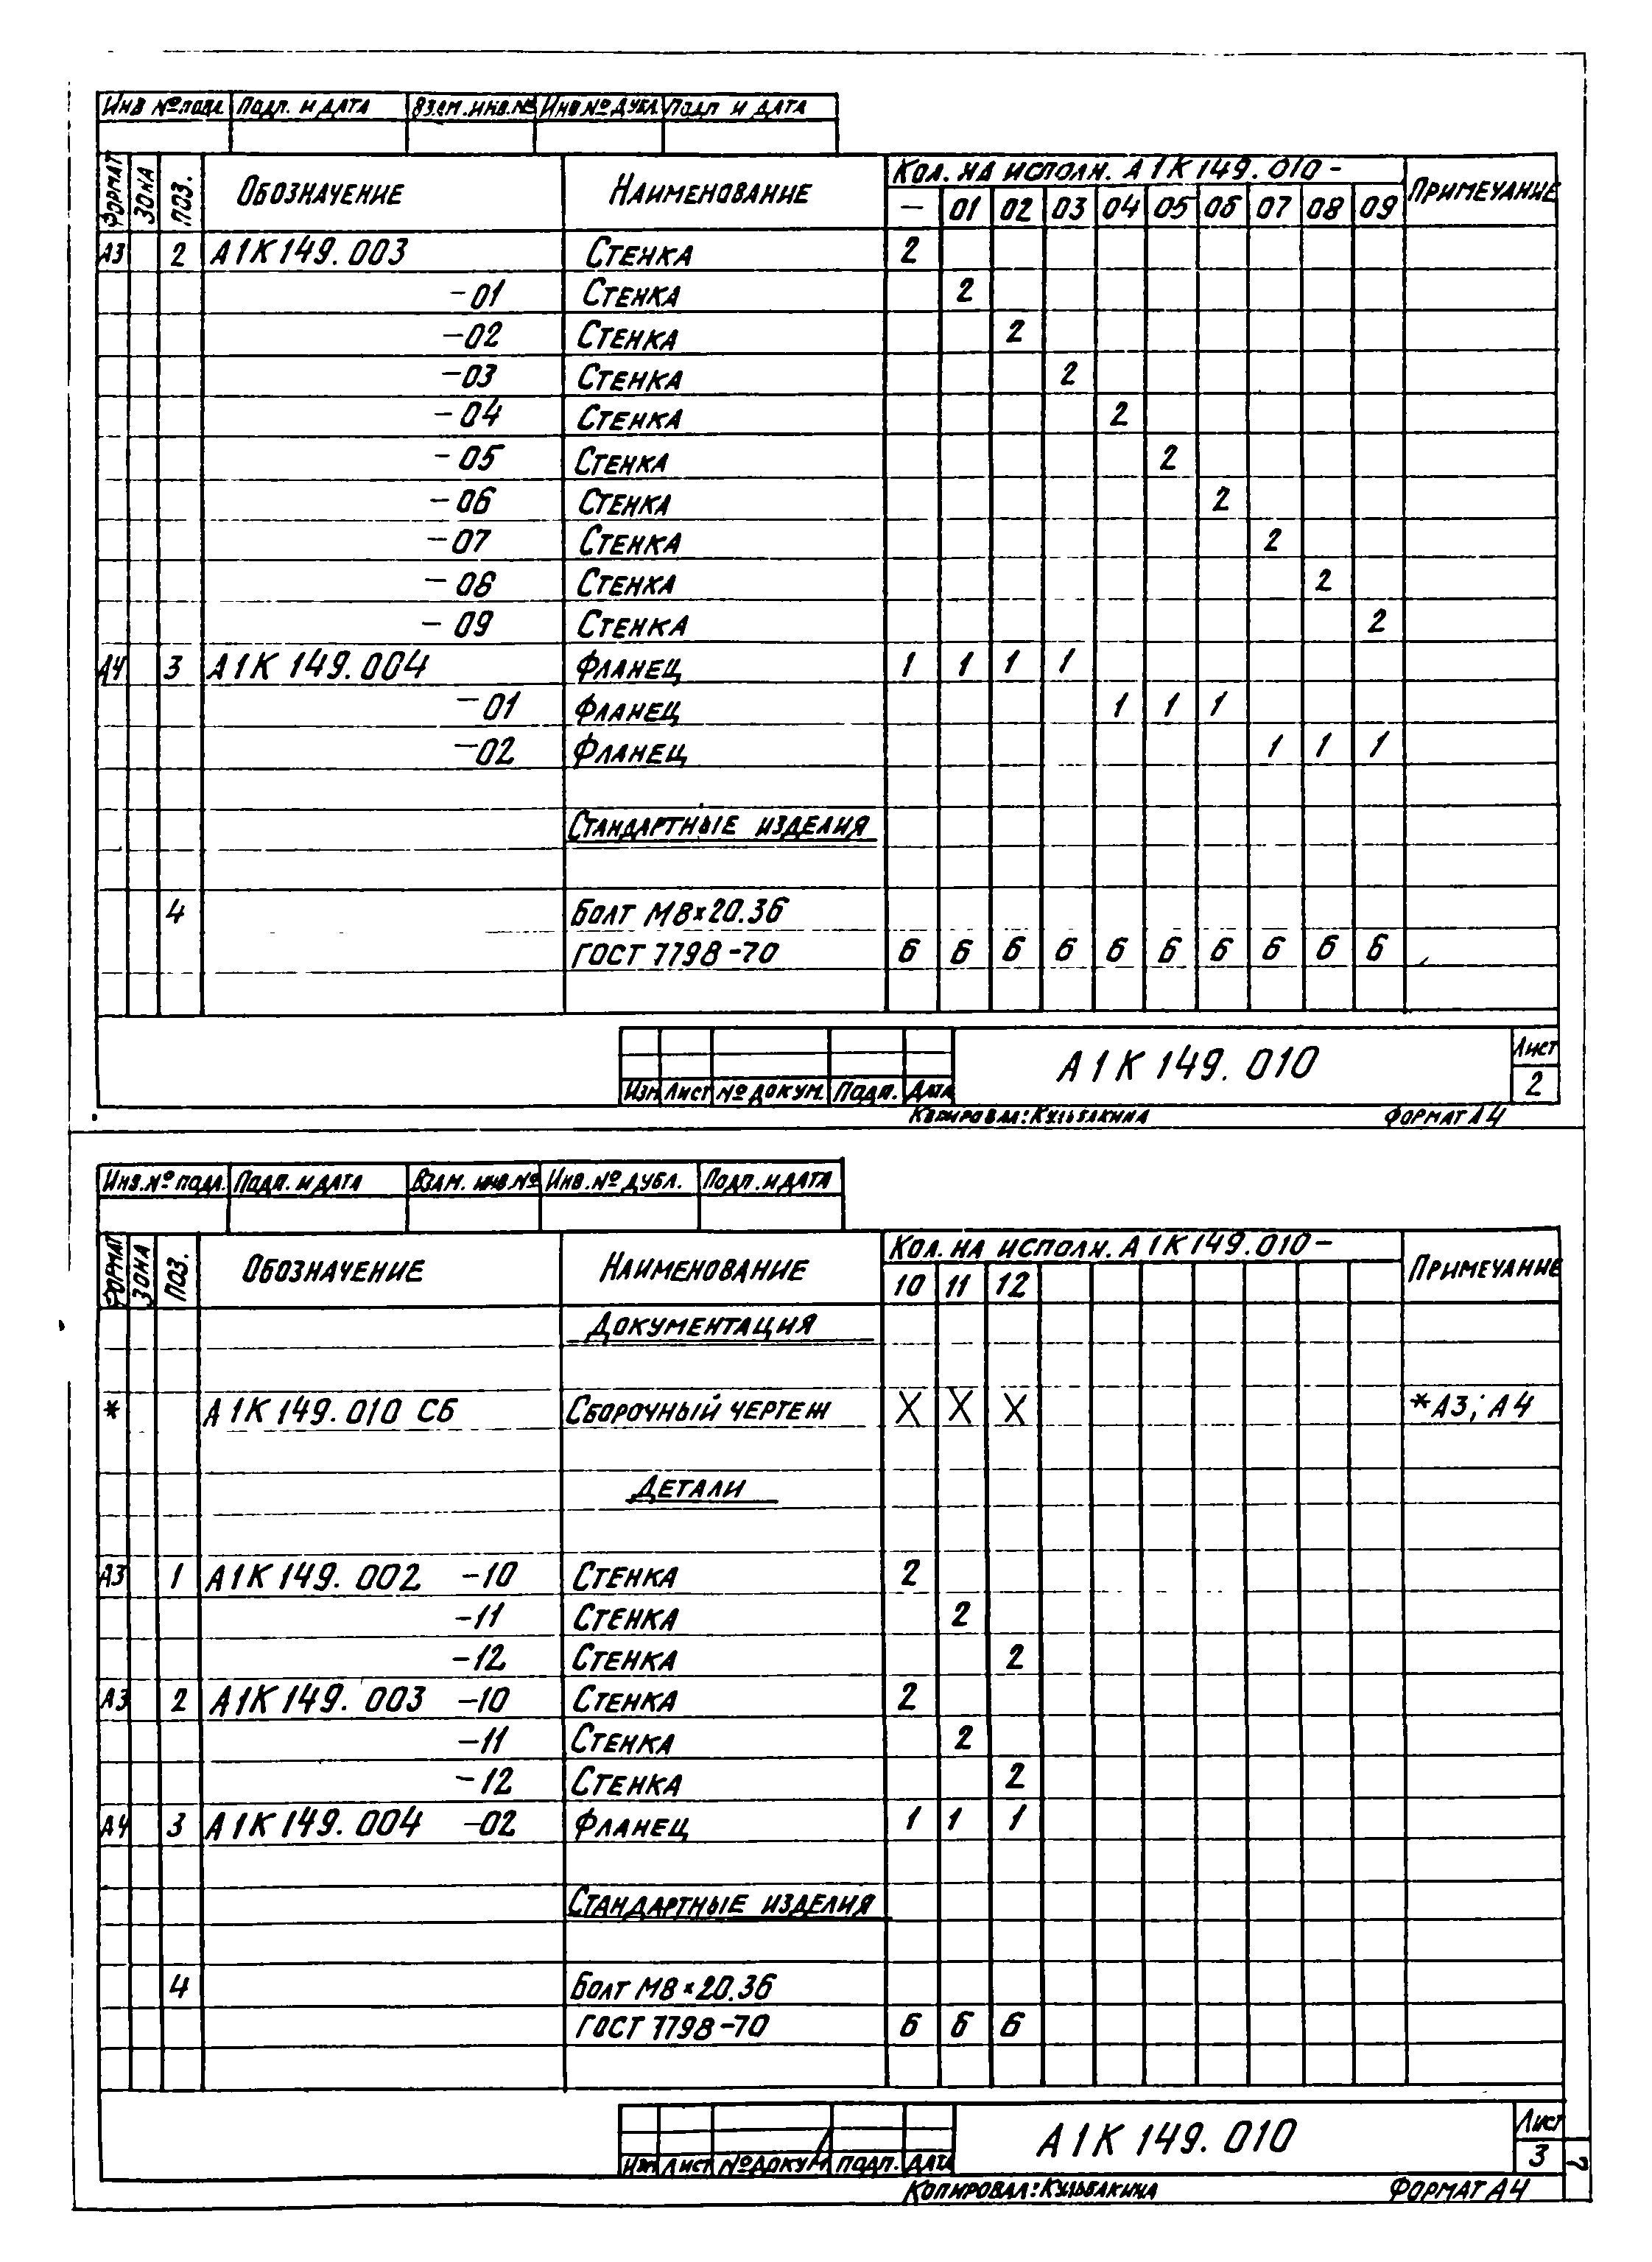 Инв №подл. Подп. и дата Взам. инв. № Инв № дубл. Подп и дата
Формат Зона Поз. Обозначение Наименование Кол. на исполн. А1К149.010- Примечание
— 01 02 03 04 05 06 07 08 09
А3 2 А1К149.003 Стенка 2
-01 Стенка 2
-02 Стенка 2
-03 Стенка 2
-04 Стенка 2
-05 Стенка 2
-06 Стенка 2
-07 Стенка 2
-08 Стенка 2
-09 Стенка 2
А4 3 А1К149.004 Фланец 1 1 1 1
-01 Фланец 1 1 1
-02 Фланец 1 1 1
Стандартные изделия
4 Болт М8×20.36
ГОСТ 7798-70 6 6 6 6 6 6 6 6 6 6
Изм Лист № докум. Подп. Дата А1К149.010 Лист 2
Копировал: Кульбакина Формат А4
Инв. № подл. Подп. и дата Взам. инв № Инв. № дубл. Подп. и дата
Формат Зона Поз. Обозначение Наименование Кол. на исполн. А1К149.010- Примечание
10 11 12
Документация
* А1К149.010 СБ Сборочный чертеж X X X *А3; А4
Детали
А3 1 А1К149.002 -10 Стенка 2
-11 Стенка 2
-12 Стенка 2
А3 2 А1К149.003 -10 Стенка 2
-11 Стенка 2
-12 Стенка 2
А4 3 А1К149.004 -02 Фланец 1 1 1
Стандартные изделия
4 Болт М8×20.36
ГОСТ 7798-70 6 6 6
Изм Лист № докум Подп. Дата А1К149.010 Лист 3
Копировал: Кульбакина Формат А4